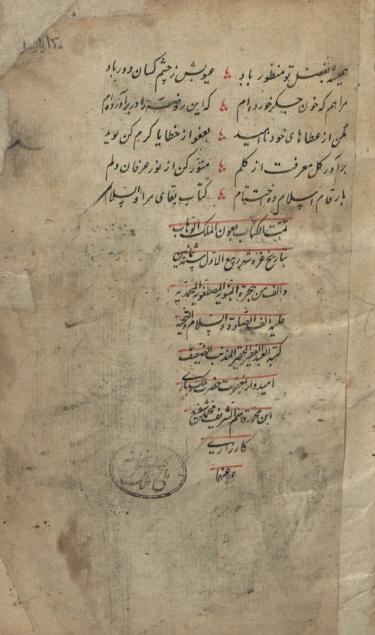 همیشه بفضل تو منظور باد عیوبش ز چشم کسان دور باد
مرا هم که خون جگر خورده‌ام که این روضه را در برآورده‌ام
مکن از عطاهای خود ناامید بعفو از خطایا کرم کن نوید
برآور گل معرفت از گلم منور کن از نور عرفان دلم
بارقام اسلام ده اختتام کتاب بقای مرا والسلام
تمت الکتاب بعون الملک الوهاب
بتاریخ غره شهر ربیع الاول سنه ثمانین
والف من هجرة النبویة المصطفویة المحمدیة
علیه الف الصلوة والسلام والتحیة
کتبه العبد الفقیر الحقیر المذنب الضعیف
امیدوار بمغفرت حضرت ملک باری
ابن محمد قاسم الشریف محمد شفیع
کارزاری
عفی عنهما